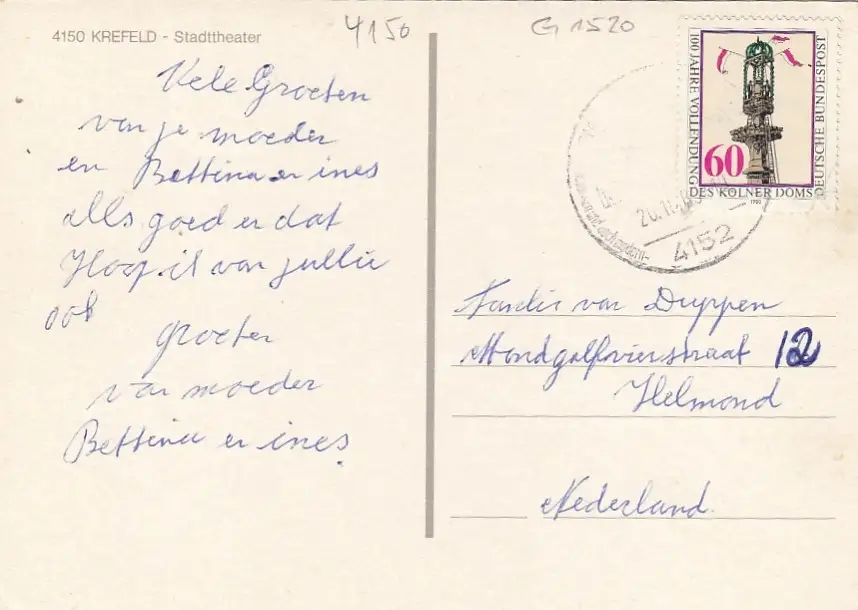 4150 KREFELD - Stadttheater
4150
G 1520
Vele Groeten
van je moeder
en Bettina en ines
alls goed en dat
Hoop ik van jullie
ook
groeten
van moeder
Bettina en ines.
100 JAHRE VOLLENDUNG
DES KÖLNER DOMS
DEUTSCHE BUNDESPOST
60
1980
4152
van Duppen
Mondgolfierstraat 12
Helmond
Nederland